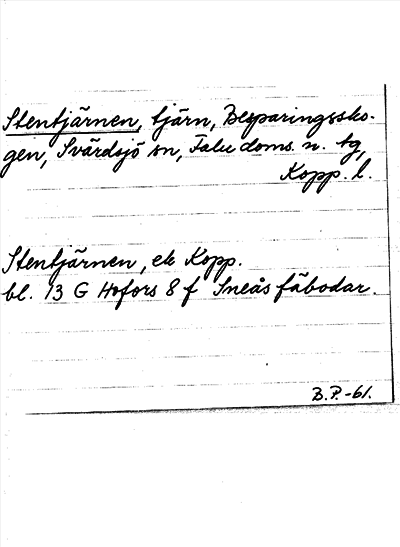 Stentjärnen, tjärn, Besparingssko-
gen, Svärdsjö sn, Falu doms. n. tg,
Kopp. l.
Stentjärnen, ek Kopp.
bl. 13 G Hofors 8 f Sneås fäbodar.
B.P.-61.